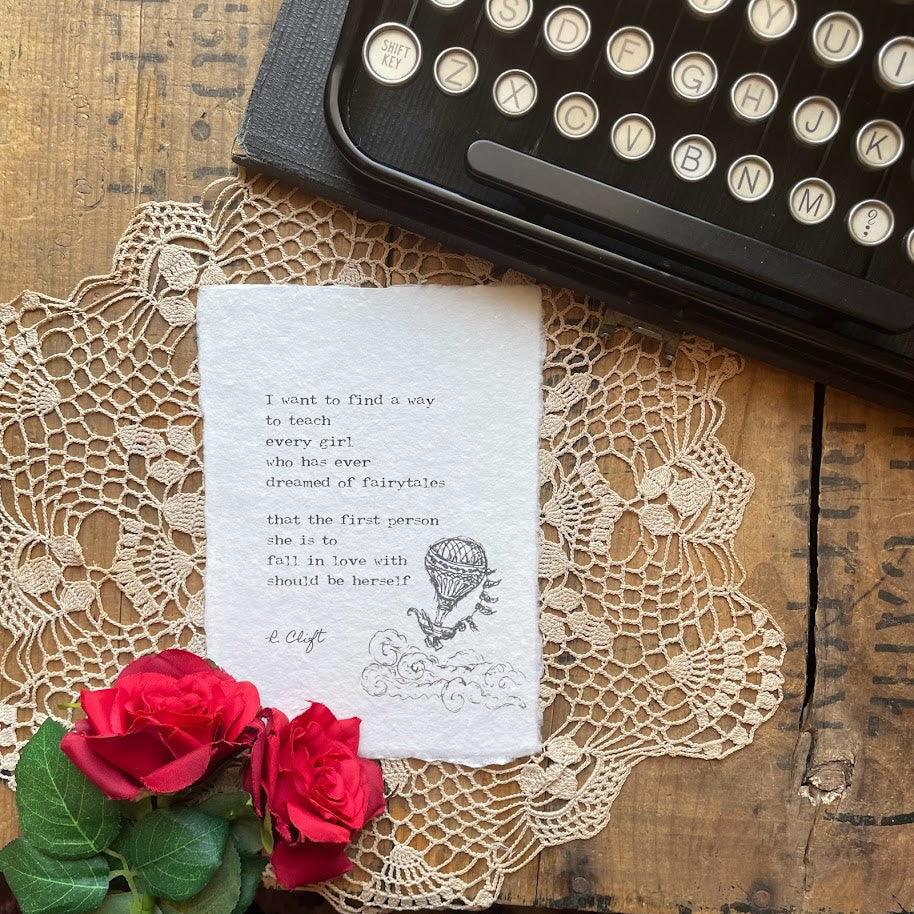 S D F Y U I
SHIFT KEY Z X C V G H J K
B N M ?
I want to find a way
to teach
every girl
who has ever
dreamed of fairytales
that the first person
she is to
fall in love with
should be herself
R. Clift